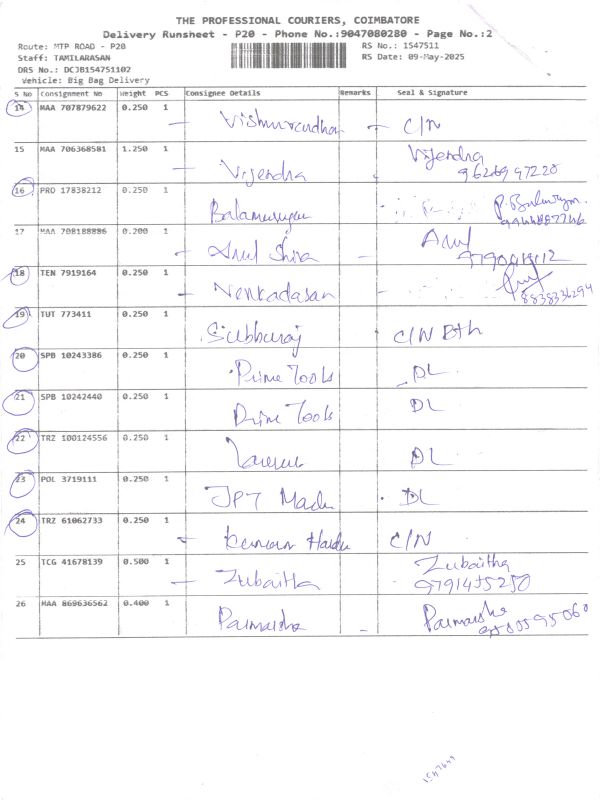 THE PROFESSIONAL COURIERS, COIMBATORE
Delivery Runsheet - P20 - Phone No.:9047080280 - Page No.:2
Route: MTP ROAD - P20 RS No.: 1547511
Staff: TAMILARASAN RS Date: 09-May-2025
DRS No.: DCJB154751102
Vehicle: Big Bag Delivery
S No Consignment No Weight PCS Consignee Details Remarks Seal & Signature
14 MAA 707879622 0.250 1 C/N
15 MAA 706368581 1.250 1 Vijendra Vijendra
9626997220
16 PRO 17838212 0.250 1 Balamurugan
17 MAA 708188886 0.200 1 Arul Shiva Arul
18 TEN 7919164 0.250 1 Venkadasan
8838336294
19 TUT 773411 0.250 1 Subburaj C/N Bth
20 SPB 10243386 0.250 1 Prime Tools DL
21 SPB 10242440 0.250 1 Prime Tools DL
22 TRZ 100124556 0.250 1 DL
23 POL 3719111 0.250 1 DL
24 TRZ 61062733 0.250 1 C/N
25 TCG 41678139 0.500 1 Zubaitha Zubaitha
26 MAA 869636562 0.400 1